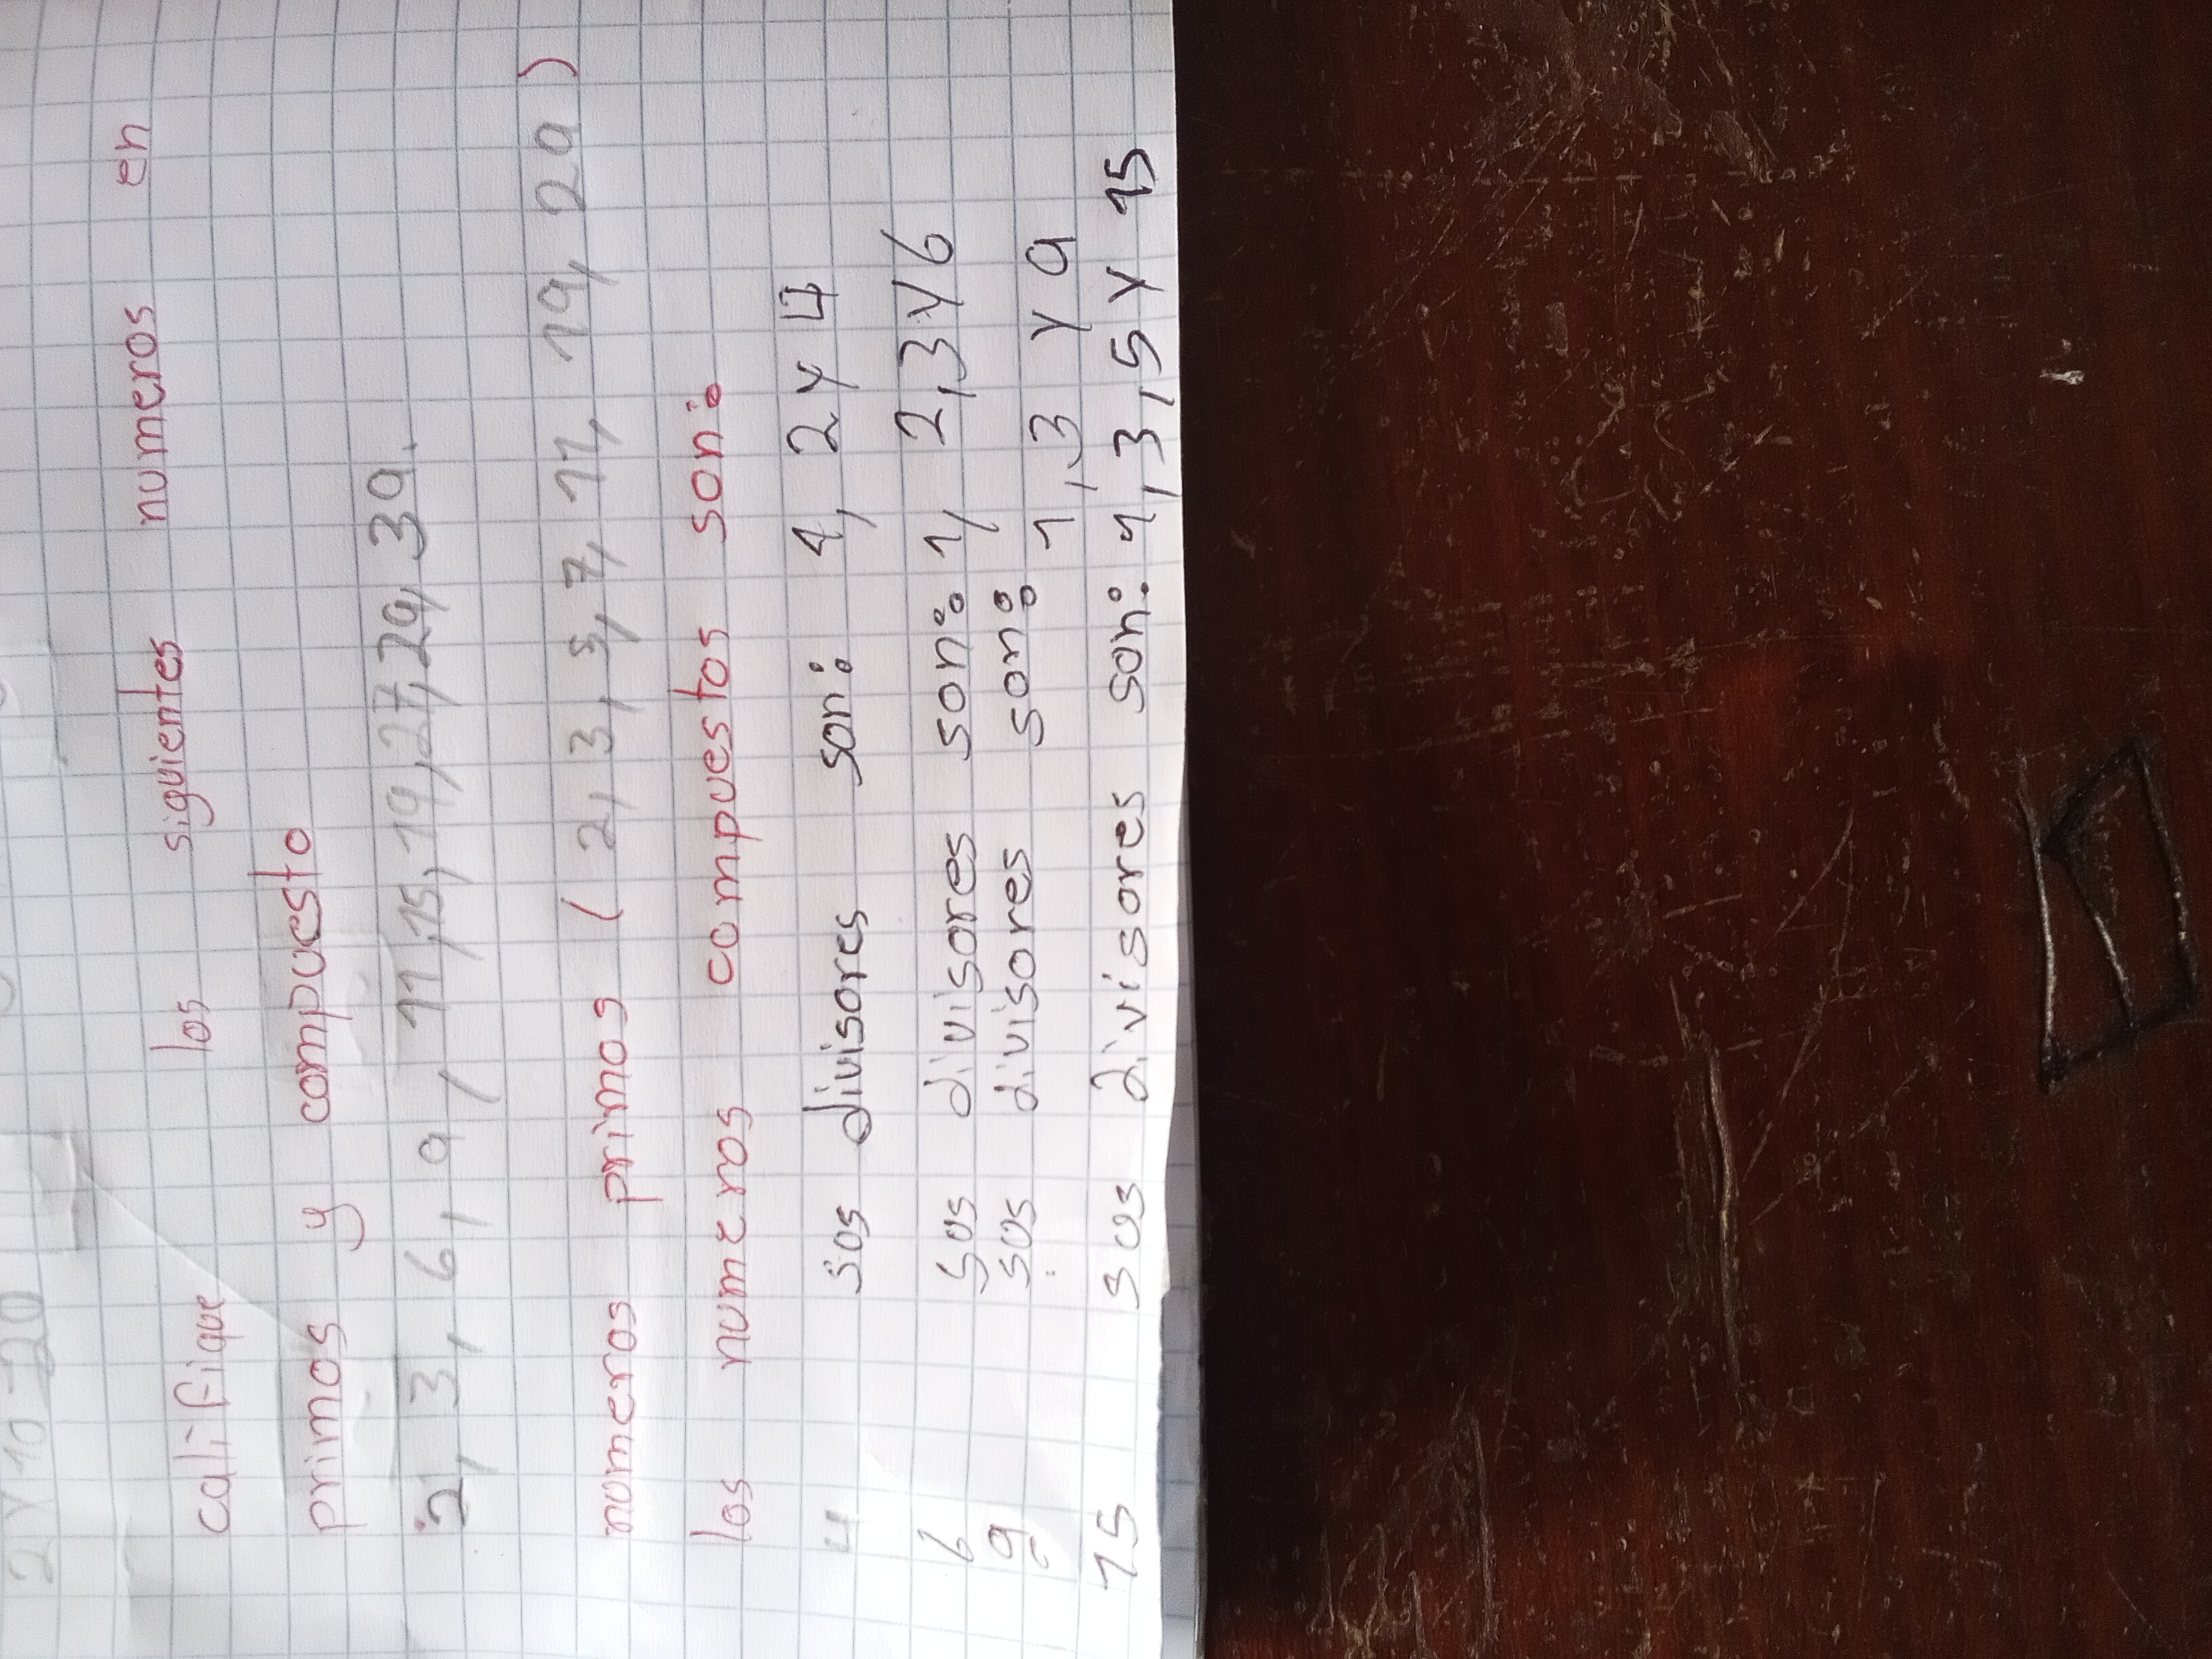 2 y 10-20
califique los siguientes numeros en
primos y compuesto
2, 3, 6, 9, 11, 15, 19, 27, 29, 39.
numeros primos ( 2, 3, 5, 7, 11, 19, 29 )
los numeros compuestos son:
4 sus divisores son: 1, 2 y 4
6 sus divisores son: 1, 2, 3 y 6
9 sus divisores son: 1, 3 y 9
15 sus divisores son: 1, 3, 5 y 15